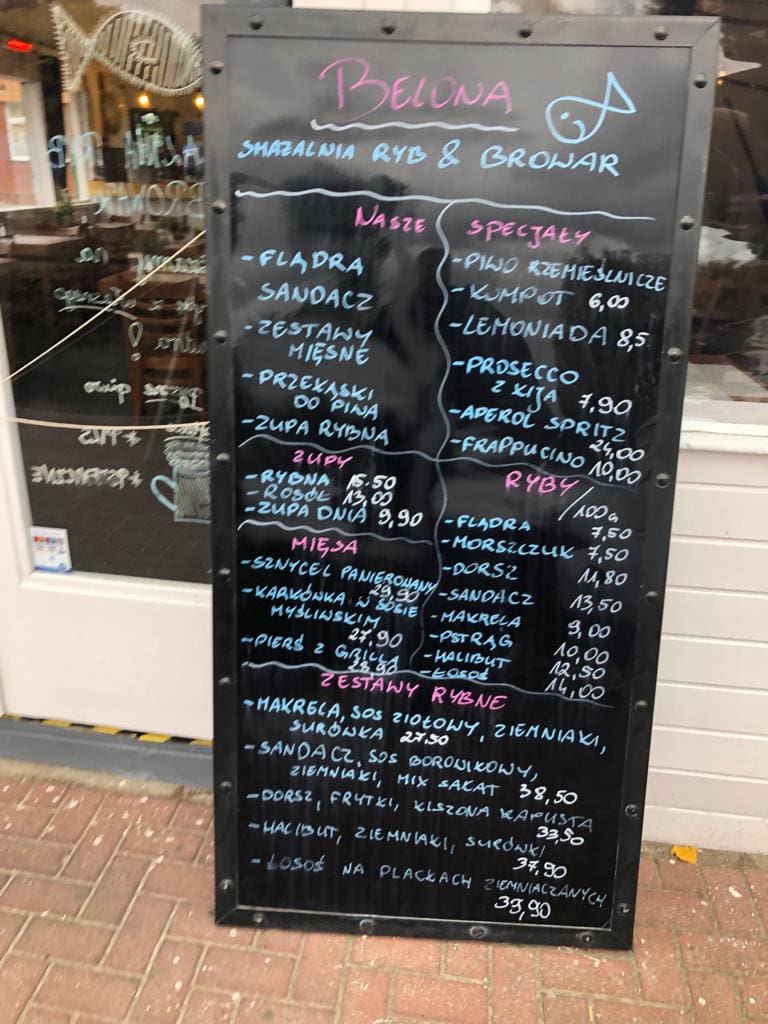 BELONA
SMAŻALNIA RYB & BROWAR
NASZE SPECJAŁY
- FLĄDRA
SANDACZ
- ZESTAWY
MIĘSNE
- PRZEKĄSKI
DO PIWA
- ZUPA RYBNA
- PIWO RZEMIEŚLNICZE
- KOMPOT 6,00
- LEMONIADA 8,5
- PROSECCO
Z KIJA 7,90
- APEROL SPRITZ
24,00
- FRAPPUCINO 10,00
ZUPY
- RYBNA 15.50
- ROSÓŁ 13,00
- ZUPA DNIA 9,90
MIĘSA
- SZNYCEL PANIEROWANY
29,90
- KARKÓWKA W SOSIE
MYŚLIWSKIM
27,90
- PIERŚ Z GRILLA
28,90
RYBY
/100g
- FLĄDRA 7,50
- MORSZCZUK 7,50
- DORSZ 11,80
- SANDACZ 13,50
- MAKRELA 9,00
- PSTRĄG 10,00
- HALIBUT 12,50
- ŁOSOŚ 14,00
ZESTAWY RYBNE
- MAKRELA, SOS ZIOŁOWY, ZIEMNIAKI,
SURÓWKA 27,50
- SANDACZ, SOS BOROWIKOWY,
ZIEMNIAKI, MIX SAŁAT 38,50
- DORSZ, FRYTKI, KISZONA KAPUSTA
33,50
- HALIBUT, ZIEMNIAKI, SURÓWKI
37,90
- ŁOSOŚ NA PLACKACH ZIEMNIACZANYCH
39,90